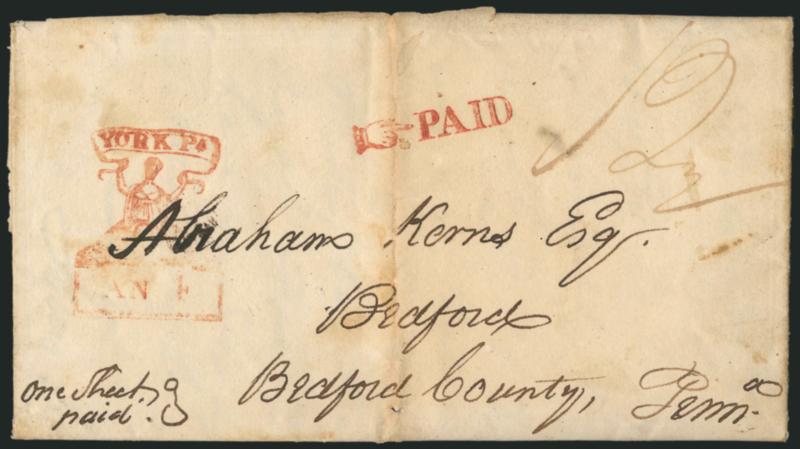 YORK Pa
PAID
12½
Abraham Kerns Esq.
Bedford
Bedford County, Penna
one Sheet
paid.